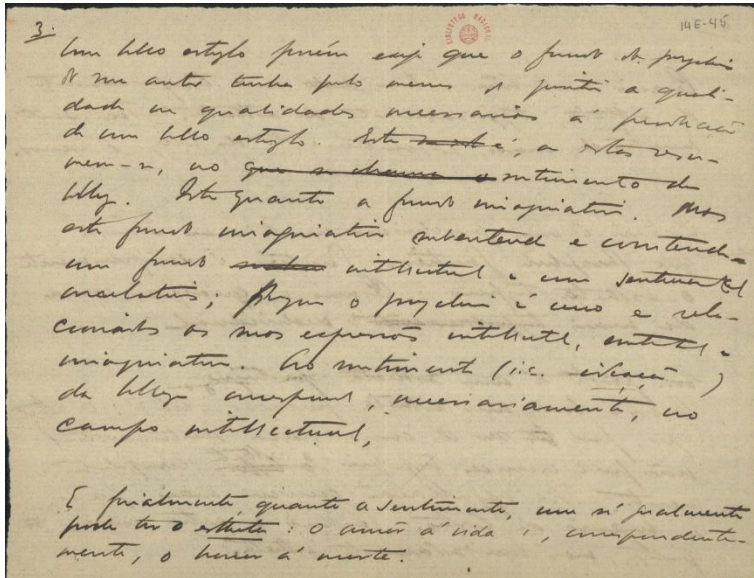 3.
14E-45
BIBLIOTECA NACIONAL
Um bello estylo porém exige que o fundo do psychismo
do seu autor tenha pelo menos a quali-
dade ou qualidades necessarias á producção
de um bello estylo. Este é, ou estas resu-
mem-se, no sentimento da
belleza. Isto quanto a fundo imaginativo. Mas
este fundo imaginativo subentende e contende
um fundo intellectual e um sentimental
correlativos; porque o psychismo é uno e rela-
cionadas as suas expressões intellectual, sentimental e
imaginativa. Ao sentimento (i.e. )
da belleza corresponde, necessariamente, no
campo intellectual,
E finalmente, quanto a sentimento, um só realmente
pode ter o estheta: o amor á vida e, correspondente-
mente, o horror á morte.